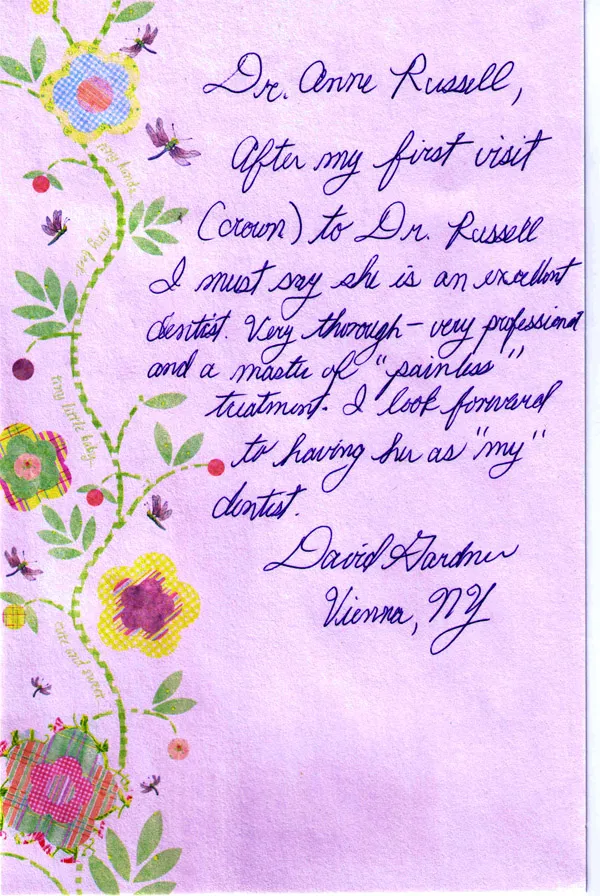 Dr. Anne Russell,
After my first visit
(crown) to Dr. Russell
I must say she is an excellent
dentist. Very thorough - very professional
and a master of "painless"
treatment. I look foreward
to having her as "my"
dentist.
David Gardner
Vienna, NY
tiny hands
tiny feet
tiny little baby
cute and sweet